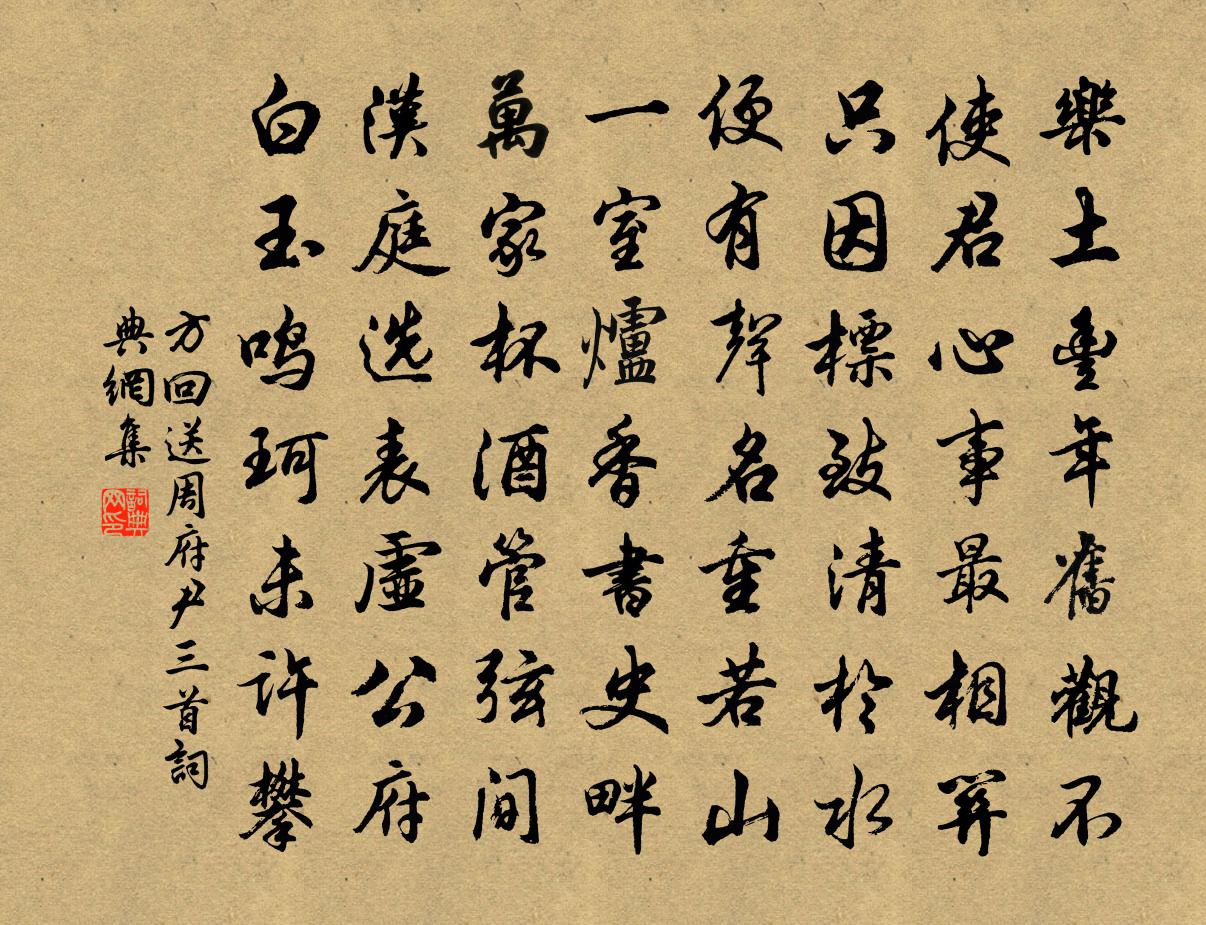 樂土豐年舊觀不
使君心事最相關
只因標致清於水
便有聲名重若山
一室爐香書史畔
萬家杯酒管弦間
漢庭選表虛公府
白玉鳴珂未許攀
方回送周府尹三首詞
典網集
詞典网印